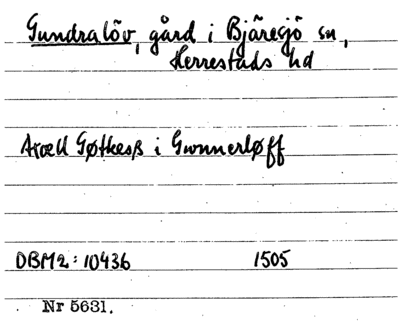 Gundralöv, gård i Bjäresjö sn,
Herrestads hd
Axell Gøtkesß i Gwnnerløff
DBM2: 10436 1505
Nr 5631.